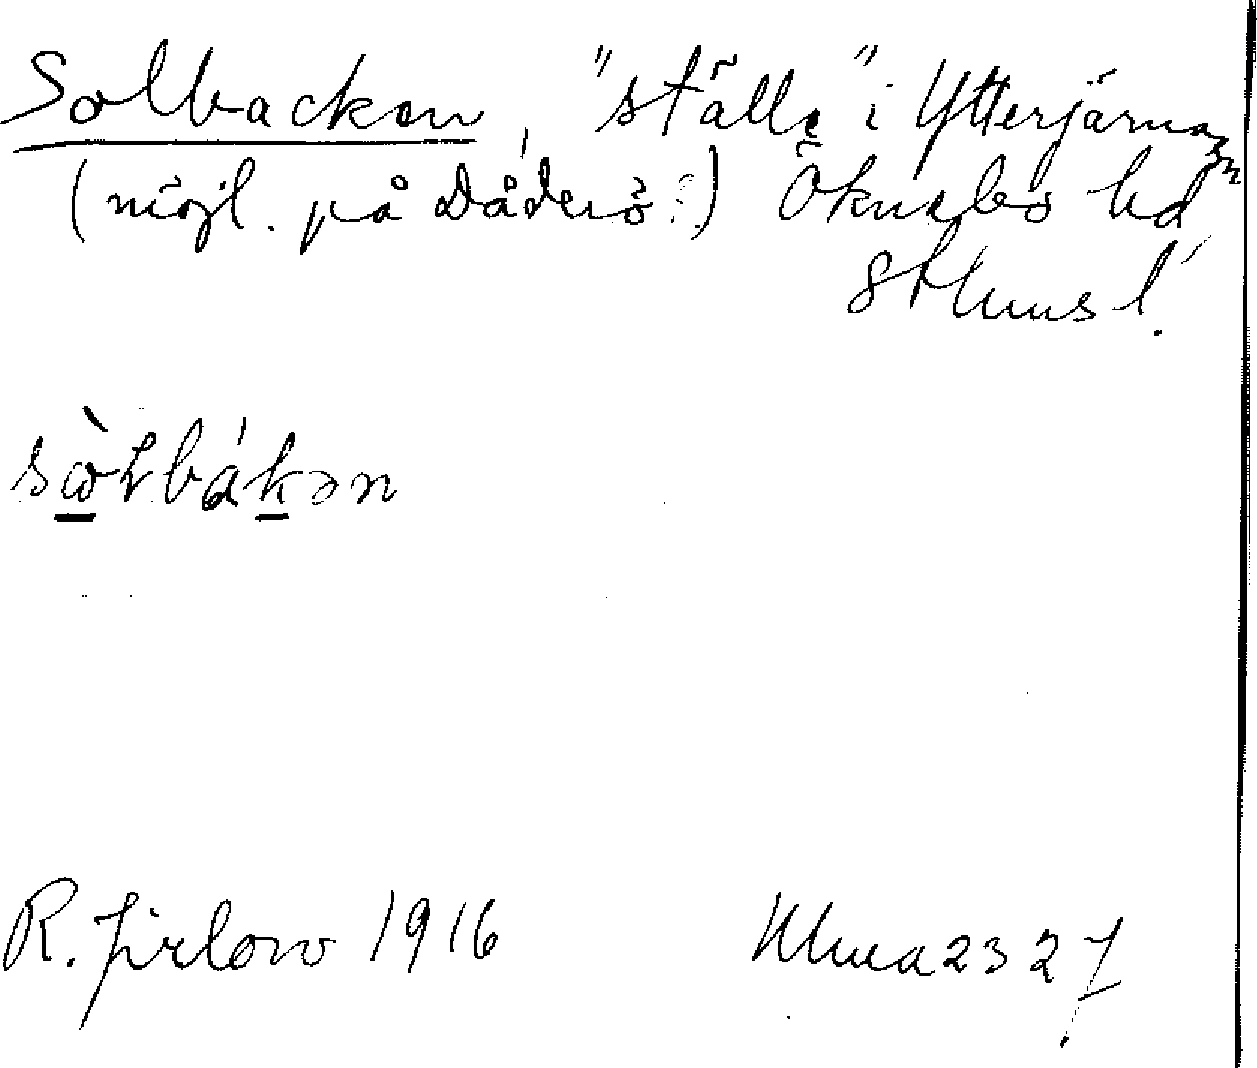 Solbacken, "ställe" i Ytterjärna sn
(möjl. på Dåderö?) Öknebo hd
Sthms l.
sὼłbákən
R. Jirlow 1916